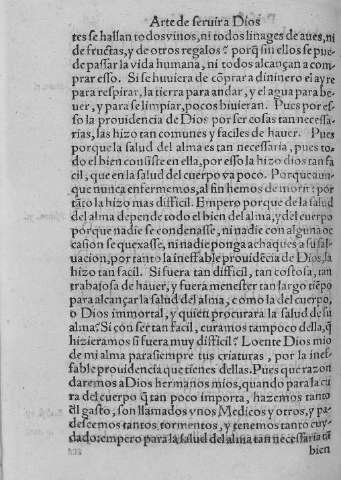 Arte de seruir a Dios
tes se hallan todos vinos, ni todos linages de aues, ni
de fructas, y de otros regalos? porq̃ sin ellos se pue-
de passar la vida humana, ni todos alcançan a com-
prar esso. Si se huuiera de cõprar a dininero el ayre
para respirar, la tierra para andar, y el agua para be-
uer, y para se limpiar, pocos biuieran. Pues por es-
so la prouidencia de Dios por ser cosas tan necessa-
rias, las hizo tan comunes y faciles de hauer. Pues
porque la salud del alma es tan necessaria, pues to-
do el bien consiste en ella, por esso la hizo dios tan fa
cil, que en la salud del cuerpo va poco. Porque aun-
que nunca enfermemos, al fin hemos de morir: por
tãto la hizo mas difficil. Empero porque de la salud
del alma depende todo el bien del alma, y del cuerpo
porque nadie se condenasse, ni nadie con alguna oc
casion se quexasse, ni nadie ponga achaques a su sal-
uacion, por tanto la ineffable prouidẽcia de Dios, la
hizo tan facil. Si fuera tan difficil, tan costosa, tan
trabajosa de hauer, y fuera menester tan largo tiẽpo
para alcançar la salud del alma, como la del cuerpo,
o Dios immortal, y quien procurara la salud de su
alma? Si con ser tan facil, curamos tampoco della, q̃
hizieramos si fuera muy difficil? Loente Dios mio
de mi alma para siempre tus criaturas, por la inef-
fable prouidencia que tienes dellas. Pues que razon
daremos a Dios hermanos mios, quando para la cu
ra del cuerpo q̃ tan poco importa, hazemos tanto
el gasto, son llamados vnos Medicos y otros, y pa-
descemos tantos tormentos, y tenemos tanto cuy-
dado: empero para la salud del alma tan necessaria tã
bien